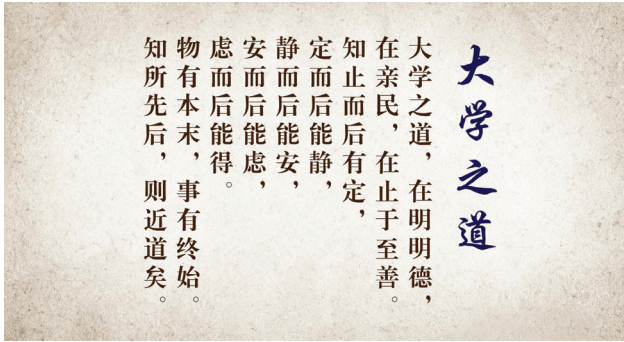 大学之道
大学之道，在明明德，
在亲民，在止于至善。
知止而后有定，
定而后能静，
静而后能安，
安而后能虑，
虑而后能得。
物有本末，事有终始。
知所先后，则近道矣。